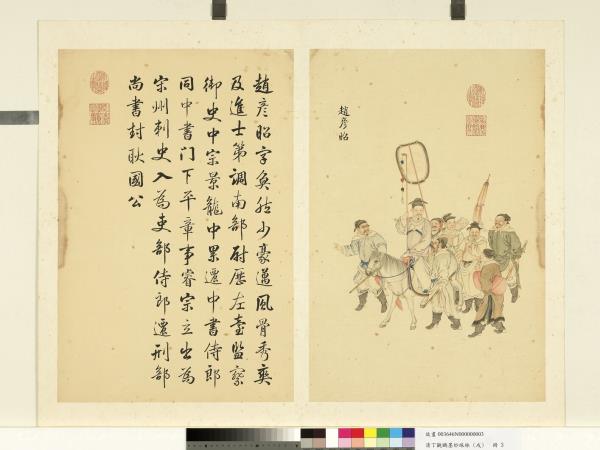 趙彥昭
趙彥昭字奐然少豪邁風骨秀爽
及進士第調南部尉歷左臺監察
御史中宗景龍中累遷中書侍郎
同中書門下平章事睿宗立出為
宋州刺史入為吏部侍郎遷刑部
尚書封耿國公
故畫 003646N000000003
清丁觀鵬墨妙珠林（戌） 冊 3